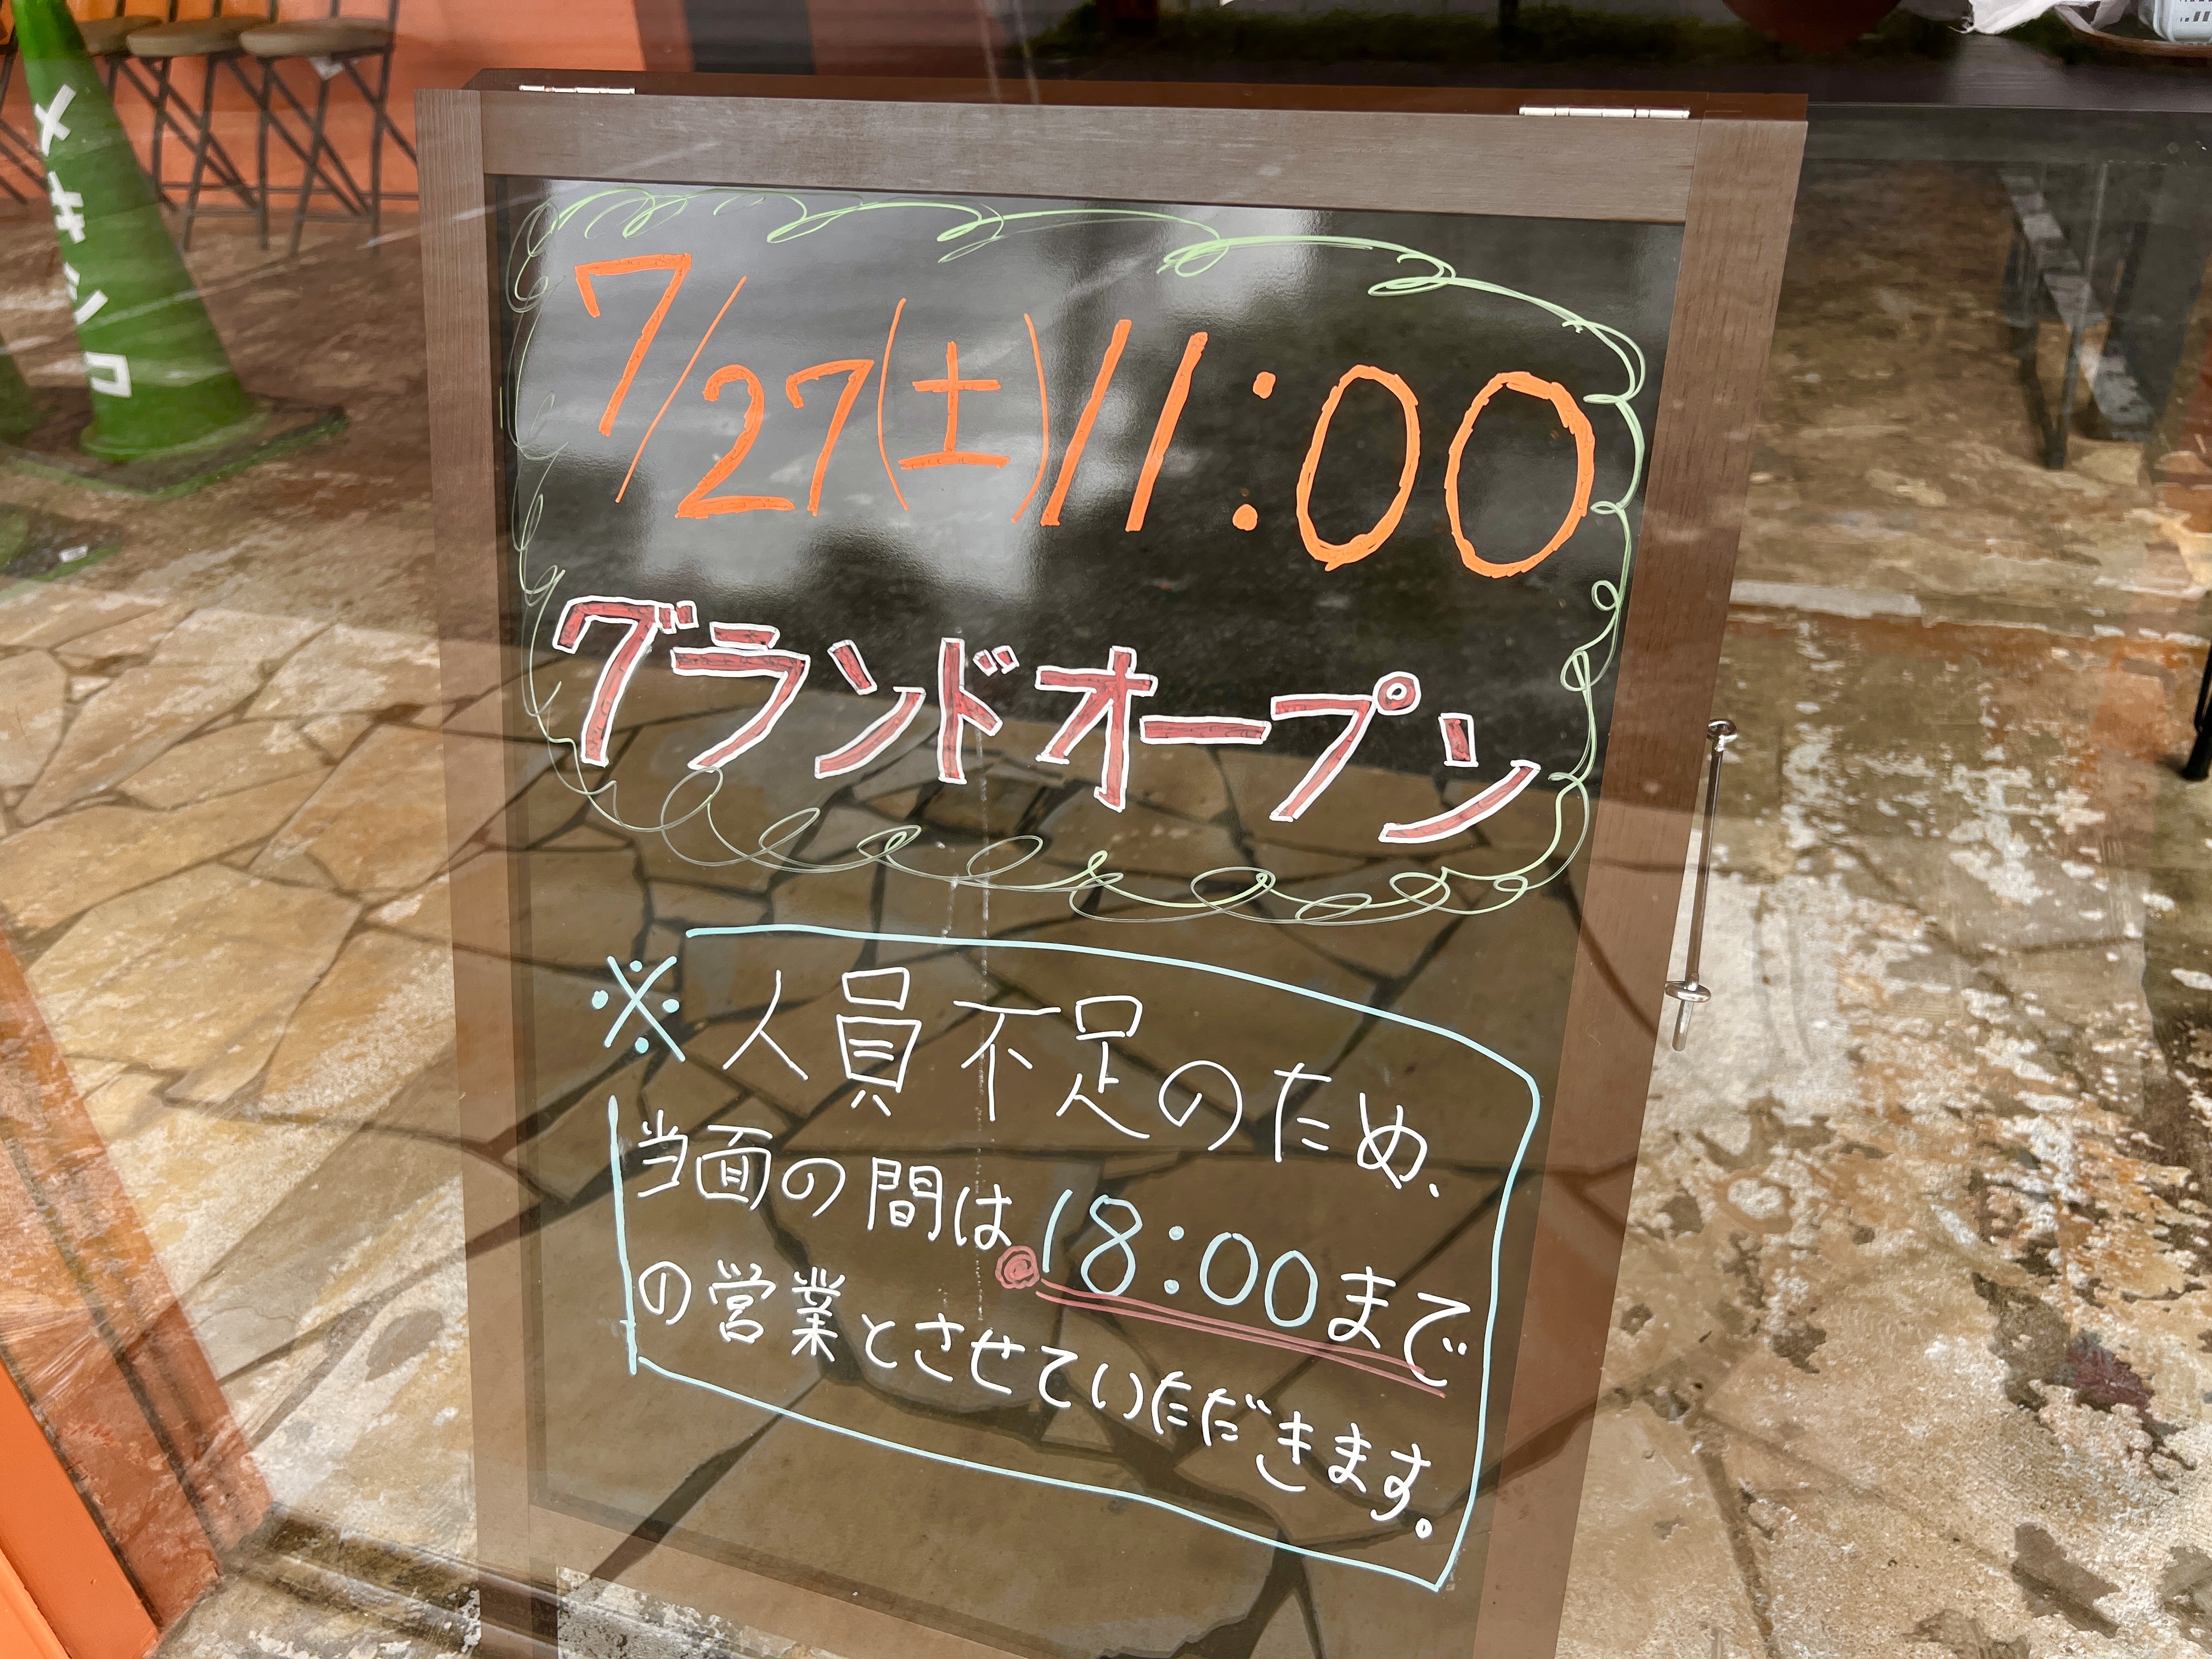 メキシコ
7/27(土)11:00
グランドオープン
※人員不足のため、
当面の間は18:00まで
の営業とさせていただきます。